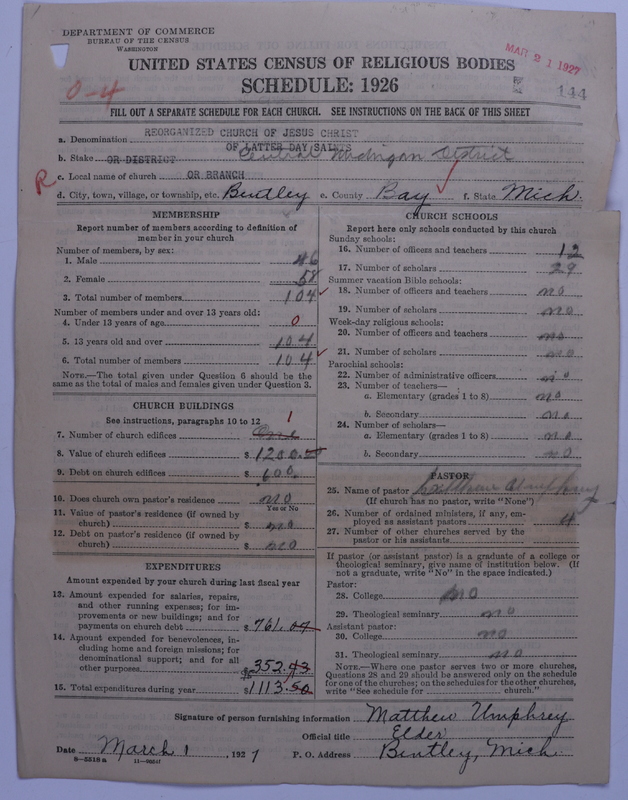 DEPARTMENT OF COMMERCE
BUREAU OF THE CENSUS
WASHINGTON
MAR 21 1927
UNITED STATES CENSUS OF RELIGIOUS BODIES
SCHEDULE: 1926
0-4
144
FILL OUT A SEPARATE SCHEDULE FOR EACH CHURCH. SEE INSTRUCTIONS ON THE BACK OF THIS SHEET
a. Denomination REORGANIZED CHURCH OF JESUS CHRIST
OF LATTER DAY SAINTS
b. State OR DISTRICT Central Michigan District
R c. Local name of church OR BRANCH
d. City, town, village, or township, etc. Bentley e. County Bay f. State Mich.
MEMBERSHIP
Report number of members according to definition of
member in your church
Number of members, by sex:
1. Male 46
2. Female 58
3. Total number of members 104
Number of members under and over 13 years old:
4. Under 13 years of age 0
5. 13 years old and over 104
6. Total number of members 104
NOTE.—The total given under Question 6 should be the
same as the total of males and females given under Question 3.
CHURCH BUILDINGS
See instructions, paragraphs 10 to 12
7. Number of church edifices One 1
8. Value of church edifices $ 1200.
9. Debt on church edifices $ 600.
10. Does church own pastor's residence no
Yes or No
11. Value of pastor's residence (if owned by
church) $ no
12. Debt on pastor's residence (if owned by
church) $ no
EXPENDITURES
Amount expended by your church during last fiscal year
13. Amount expended for salaries, repairs,
and other running expenses; for im-
provements or new buildings; and for
payments on church debt $ 761.07
14. Amount expended for benevolences, in-
cluding home and foreign missions; for
denominational support; and for all
other purposes $ 352.43
15. Total expenditures during year $ 1113.50
CHURCH SCHOOLS
Report here only schools conducted by this church
Sunday schools:
16. Number of officers and teachers 12
17. Number of scholars 29
Summer vacation Bible schools:
18. Number of officers and teachers no
19. Number of scholars no
Week-day religious schools:
20. Number of officers and teachers no
21. Number of scholars no
Parochial schools:
22. Number of administrative officers no
23. Number of teachers—
a. Elementary (grades 1 to 8) no
b. Secondary no
24. Number of scholars—
a. Elementary (grades 1 to 8) no
b. Secondary no
PASTOR
25. Name of pastor Matthew Umphrey
(If church has no pastor, write "None")
26. Number of ordained ministers, if any, em-
ployed as assistant pastors 4
27. Number of other churches served by the
pastor or his assistants
If pastor (or assistant pastor) is a graduate of a college or
theological seminary, give name of institution below. (If
not a graduate, write "No" in the space indicated.)
Pastor:
28. College no
29. Theological seminary no
Assistant pastor:
30. College no
31. Theological seminary no
NOTE.—Where one pastor serves two or more churches,
Questions 28 and 29 should be answered only on the schedule
for one of the churches; on the schedules for the other churches,
write "See schedule for church."
Signature of person furnishing information Matthew Umphrey
Official title Elder
Date March 1, 1927 P. O. Address Bentley, Mich.
8-5518a